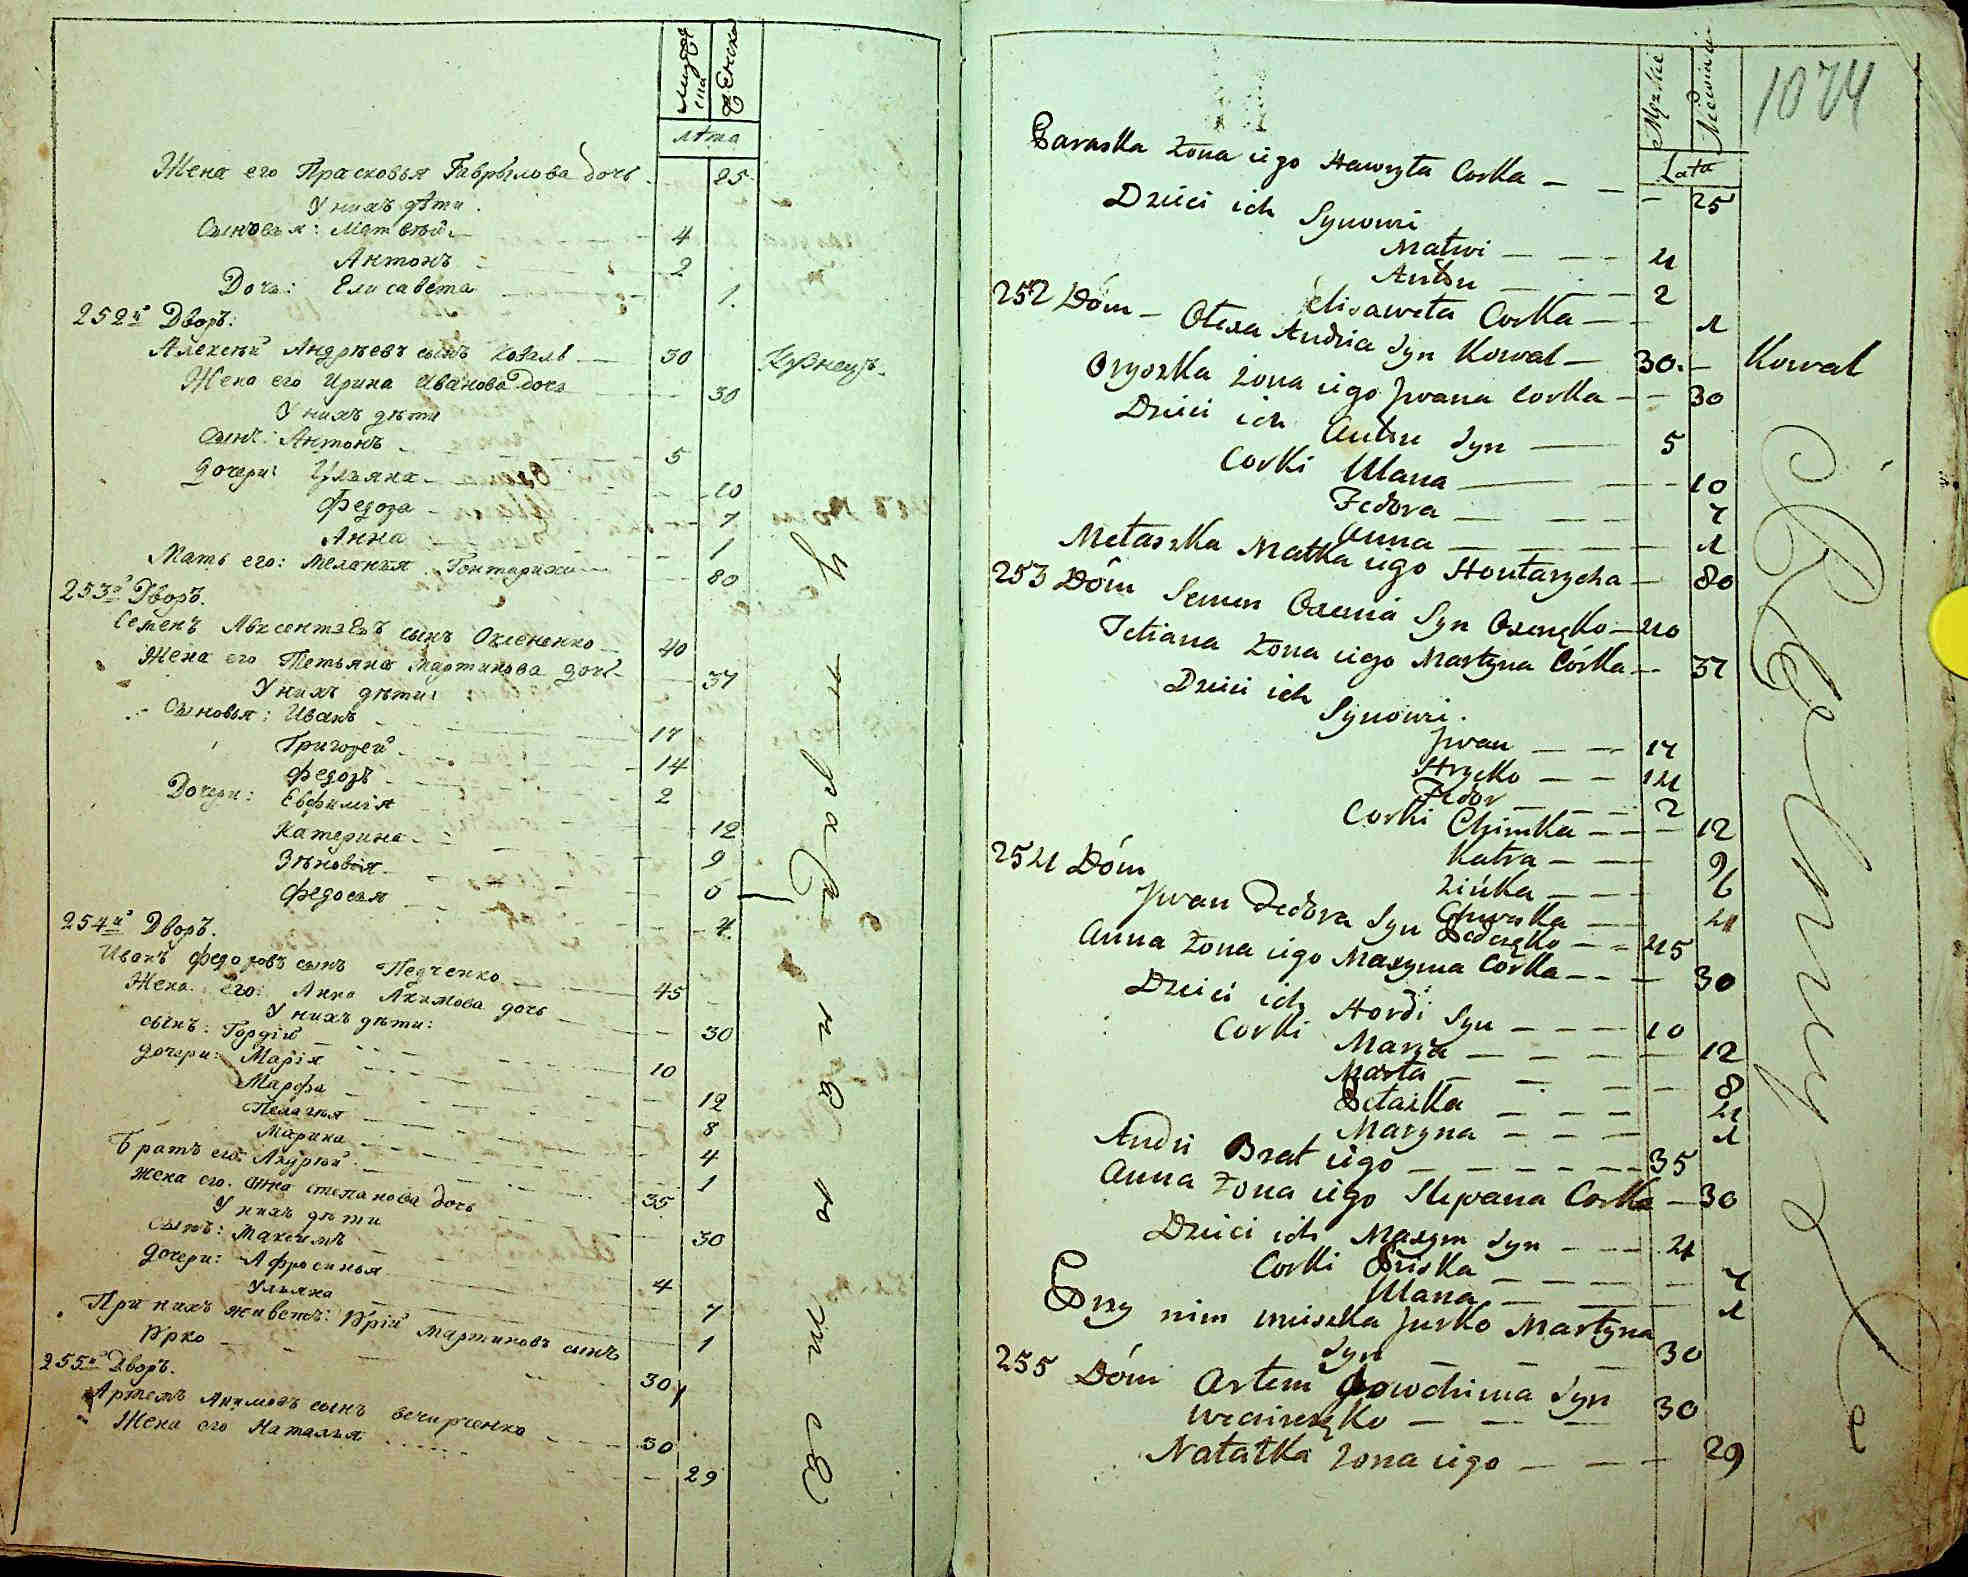 Мужеска
Женска
лѣта
Жена его Прасковья Гаврылова дочь 25
У нихъ дѣти.
Сыновья: Матвѣй 4
Антонъ 2
Дочь: Елисавета 1.
252й Дворъ:
Алексѣй Андрѣевъ сынъ Коваль 30 Кузнецъ.
Жена его Ирина Иванова дочь 30
У нихъ дѣти
Сынъ: Антонъ 5
дочери: Ульяна 10
Федора 7
Анна 1
Мать его: Меланья Гонтариха 80
253й Дворъ.
Семенъ Авксентіевъ сынъ Оксененко 40
Жена его Тетьяна Мартинова дочь 37
У нихъ дѣти:
Сыновья: Иванъ 17
Григорей 14
Федоръ 2
Дочери: Евфимія 12
Катерина 9
Зѣновія 6
Федосья 4
254й Дворъ.
Иванъ Федоровъ сынъ Педченко 45
Жена его: Анна Акимова дочь 30
У нихъ дѣти:
сынъ: Гордій 10
дочери: Марія 12
Марфа 8
Пелагѣя 4
Марина 1
Братъ его: Андрѣй 35
Жена его. Анна степанова дочь 30
У нихъ дѣти
Сынъ: Максимъ 4
Дочери: Афросинья 7
Ульяна 1
При нихъ живетъ: Юрій Мартиновъ сынъ
Юрко 30
255й Дворъ.
Артемъ Акимовъ сынъ вечирченко 30
Жена его Наталья 29
Męzkie
Niewiescie
Lata
1074
Paraska żona iego Hawryła Corka — 25
Dzieci ich Synowie
Matwi — 4
Anton — 2
Elisaweta Corka — 1
252 Dóm — Olexa Andria Syn Kowal — 30 — Kowal
Oryszka żona iego Jwana Corka — 30
Dzieci ich Anton Syn — 5
Corki Ulana — 10
Fedora — 7
Anna — 1
Mełaszka Matka iego Hontarycha — 80
253 Dóm Semen Oxenia Syn Oxenęko — 40
Tetiana żona iego Martyna Córka — 37
Dzieci ich
Synowie.
Jwan — 17
Hrycko — 14
Fedor — 2
Corki Chimka — 12
Katra — 9
Zińka — 6
254 Dóm
4
Jwan Fedora Syn Pedczęko — 45
Anna żona iego Maxyma Córka — 30
Dzieci ich Hordi Syn — 10
Corki Marya — 12
Marta — 8
Pełażka — 4
Maryna — 1
Andri Brat iego — 35
Anna żona iego Stepana Corka — 30
Dzieci ich Maxym Syn — 4
Corki Priska — 7
Ulana — 1
Przy nim mieszka Jurko Martyna
Syn — 30
255 Dóm Artem Jowchima Syn
Weczirczęko — 30
Natałka żona iego — 29